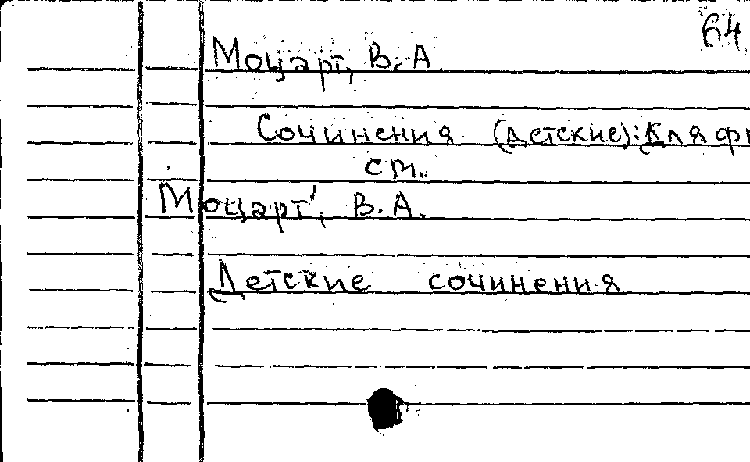 64
Моцарт, В. А
Сочинения (детские): Для фп
см.
Моцарт, В. А.
Детские сочинения